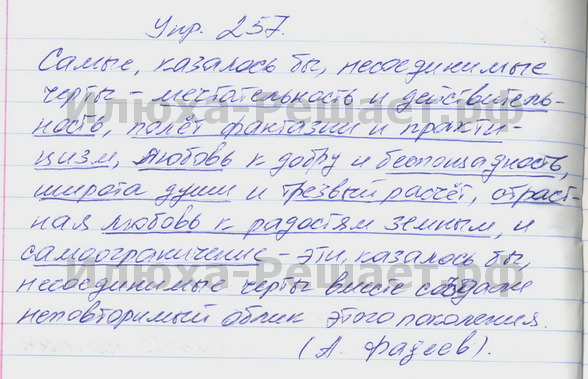 Упр. 257.
Самые, казалось бы, несоединимые
черты – мечтательность и действитель-
ность, полёт фантазии и практи-
цизм, любовь к добру и беспощадность,
широта души и трезвый расчёт, страст-
ная любовь к радостям земным, и
самоограничение – эти, казалось бы,
несоединимые черты вместе создали
неповторимый облик этого поколения.
(А. Фадеев).
Илюха-Решает.рф
Илюха-Решает.рф